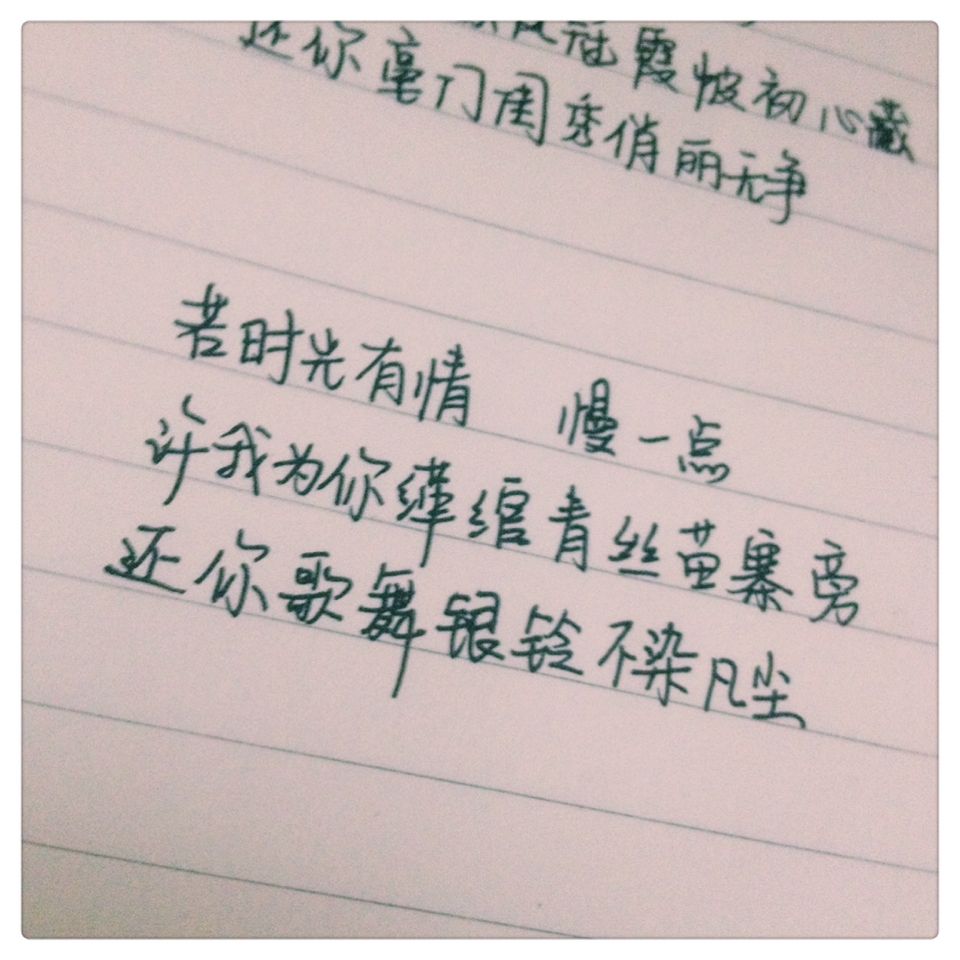 冠霞帔初心藏
还你豪门闺秀俏丽无争
若时光有情 慢一点
许我为你缂绾青丝苗寨旁
还你歌舞银铃不染凡尘